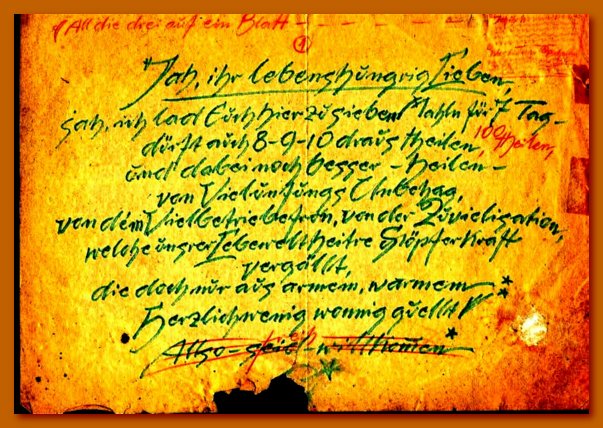 (All die drei auf ein Blatt
1
"Jah, ihr lebenshungrig Lieben,
jah, ich lad Euch hier zu sieben Mahln für 7 Tag-
dürft auch 8-9-10 draus theilen, 100theilen,
und dabei noch besser - heilen -
von Vielundjungs Unbehag,
von dem Vielbetriebefron, von der Zuvielisation,
welche unsrer Lebewelt heitre Schöpferkraft
vergällt,
die doch nur aus armem, warmem
Herzlichwenig wonnig quellt
Allso - seid - willkomen